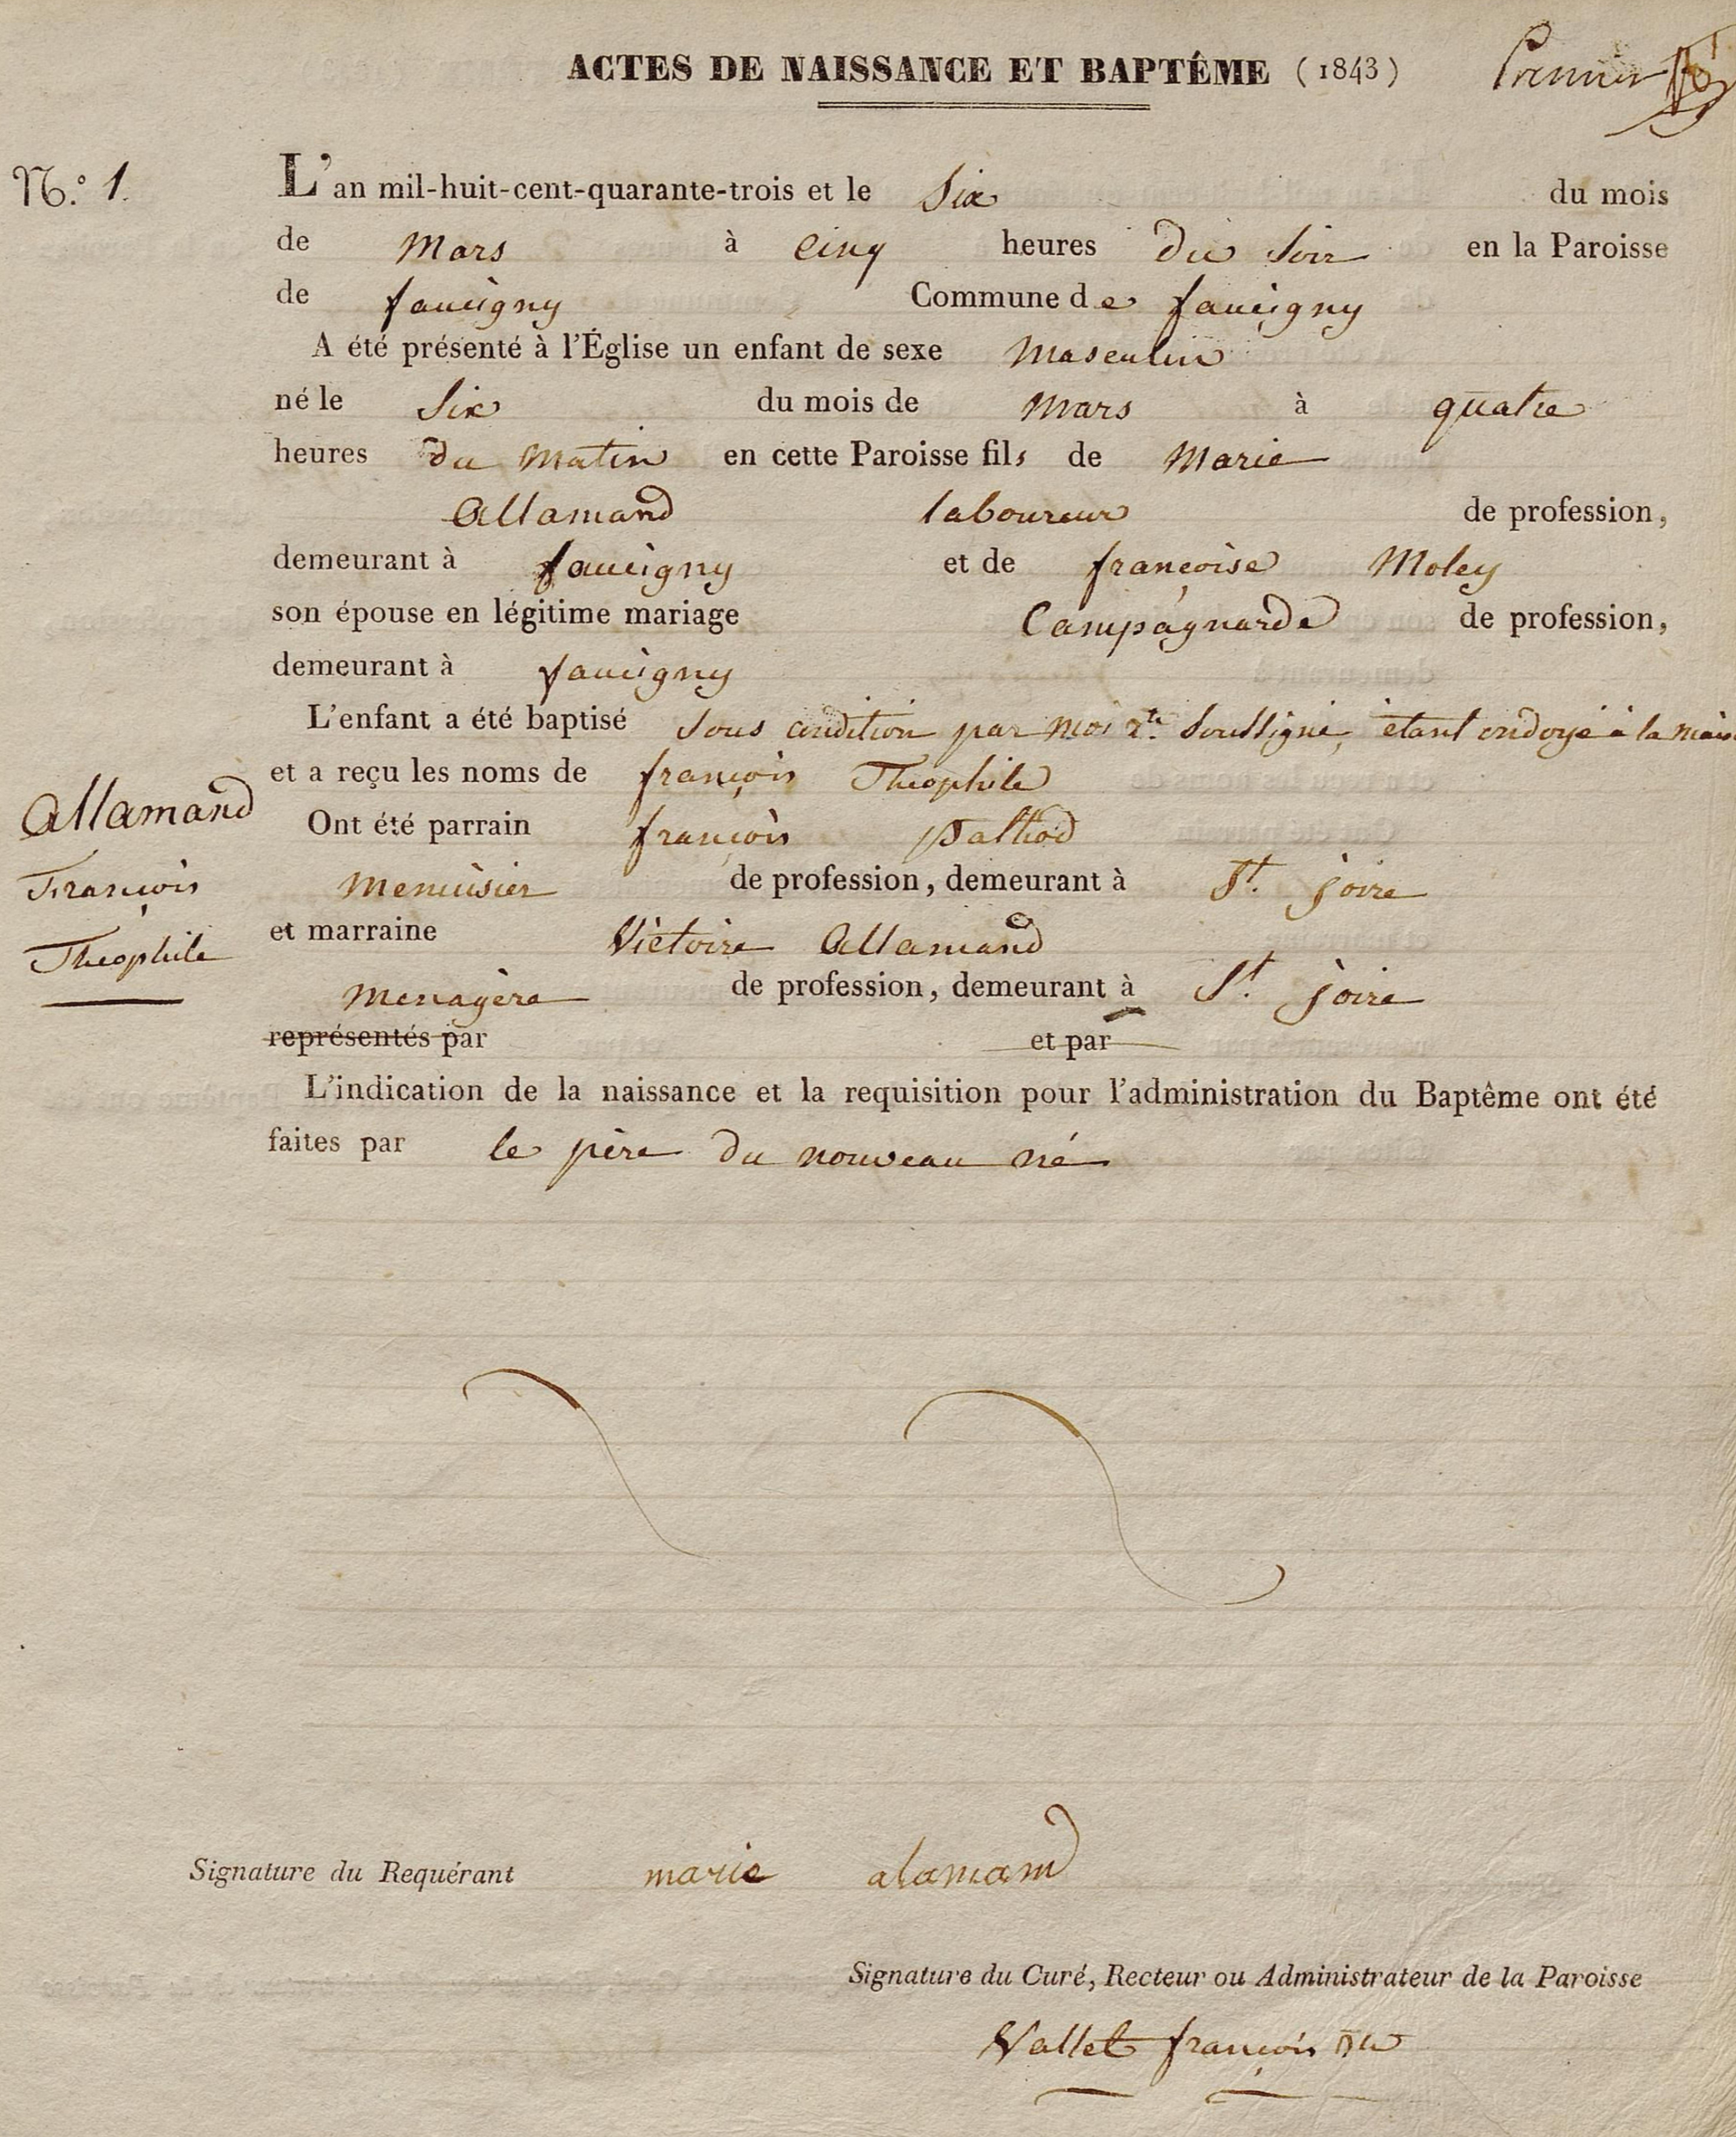 ACTES DE NAISSANCE ET BAPTÊME (1843) Premier
N.° 1. L'an mil-huit-cent-quarante-trois et le Six du mois
de Mars à cinq heures du Soir en la Paroisse
de faucigny Commune de faucigny
A été présenté à l'Église un enfant de sexe Masculin
né le Six du mois de Mars à quatre
heures du Matin en cette Paroisse fils de Marie
Allamand laboureur de profession,
demeurant à faucigny et de françoise Moley
son épouse en légitime mariage Campagnarde de profession,
demeurant à faucigny
L'enfant a été baptisé Sous condition par moi Soussigné, étant ondoyé à la
et a reçu les noms de françois Théophile
Allamand Ont été parrain françois
François menuisier de profession, demeurant à St. joire
Théophile et marraine Victoire Allamand
menagère de profession, demeurant à St. joire
représentés par et par
L'indication de la naissance et la requisition pour l'administration du Baptême ont été
faites par le père du nouveau né
Signature du Requérant marie alamand
Signature du Curé, Recteur ou Administrateur de la Paroisse
Vallet françois